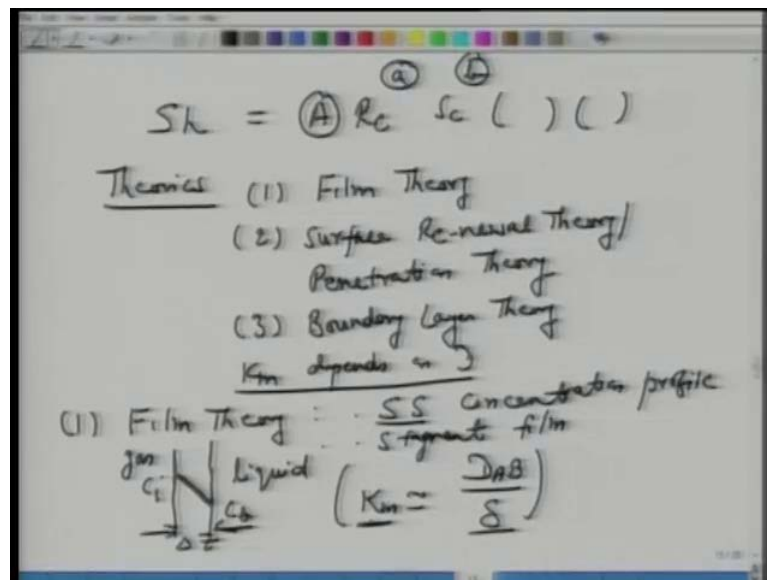 (a) (b)
Sh = (A) Re Sc ( ) ( )
Theories (1) Film Theory
(2) Surface Re-newal Theory/
Penetration Theory
(3) Boundary Layer Theory
Km depends on D
(1) Film Theory : . SS Concentration profile
: . Stagnant film
gas Liquid
Ci Cb
(Km = DAB/δ)